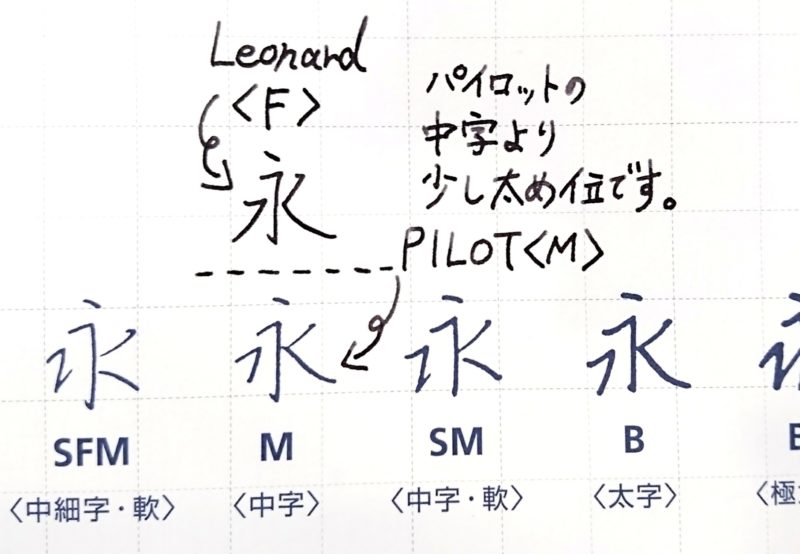 Leonard
<F>
永
パイロットの
中字より
少し太め位です。
PILOT<M>
永 永 永 永
SFM M SM B
〈中細字・軟〉 〈中字〉 〈中字・軟〉 〈太字〉